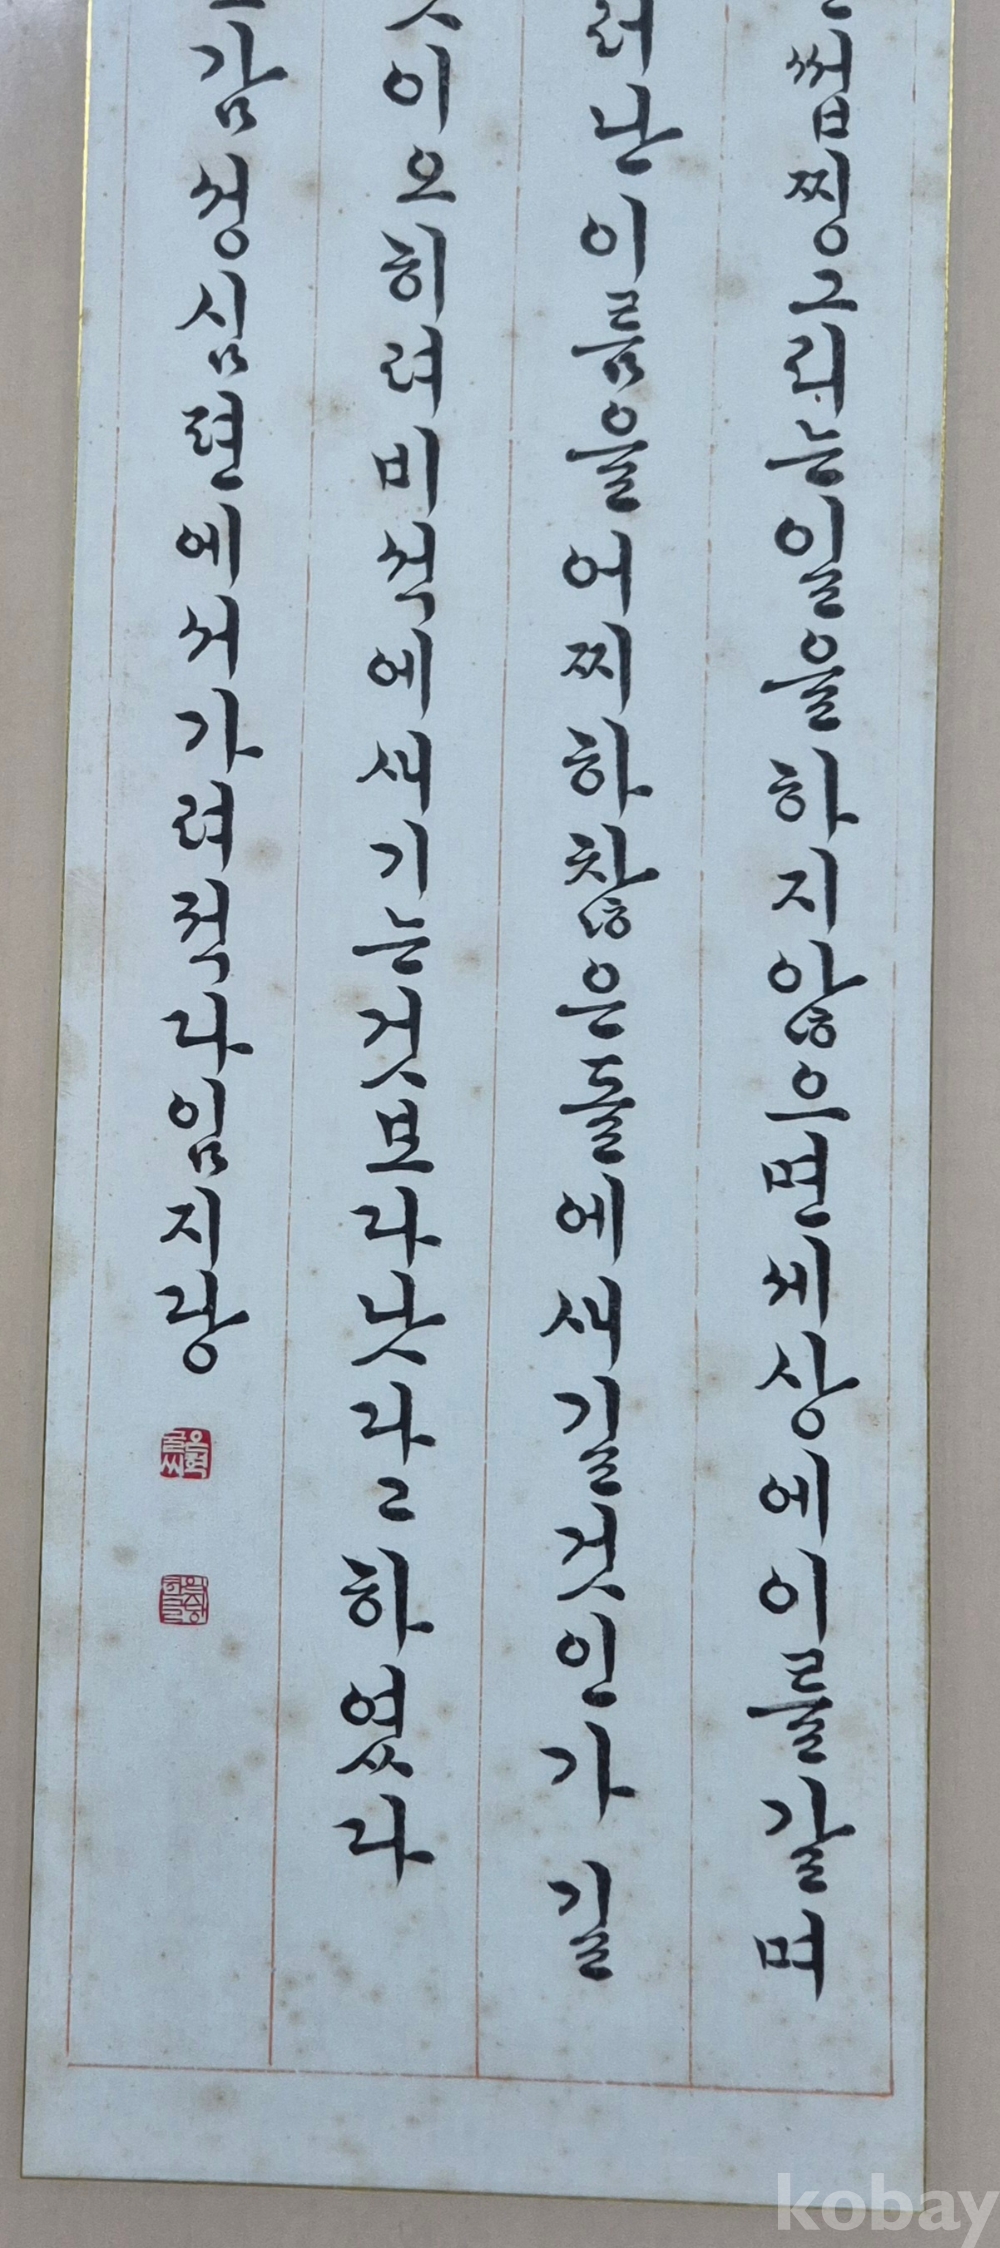 썹찡그리는일을하지않으면세상에이를갈며
러난이름을어찌하찮은돌에새길것인가길
이오히려비석에새기는것보라낫라고하였다
감성심편에서가려적다임지랑
kobay